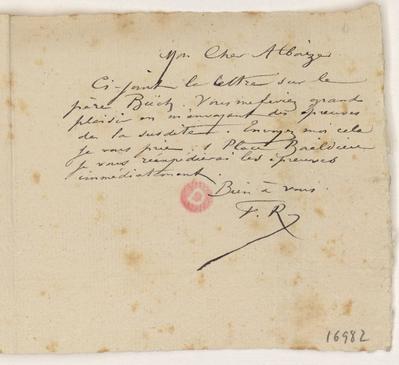 Mon Cher Alboize
Ci-joint la lettre sur le
père Büch. Vous me feriez grand
plaisir en m'envoyant des épreuves
de la susdite. Envoyez moi cela
je vous prie. 1 Place Boieldieu
je vous réexpédierai les épreuves
immédiatement.
Bien à vous.
F. R
16982